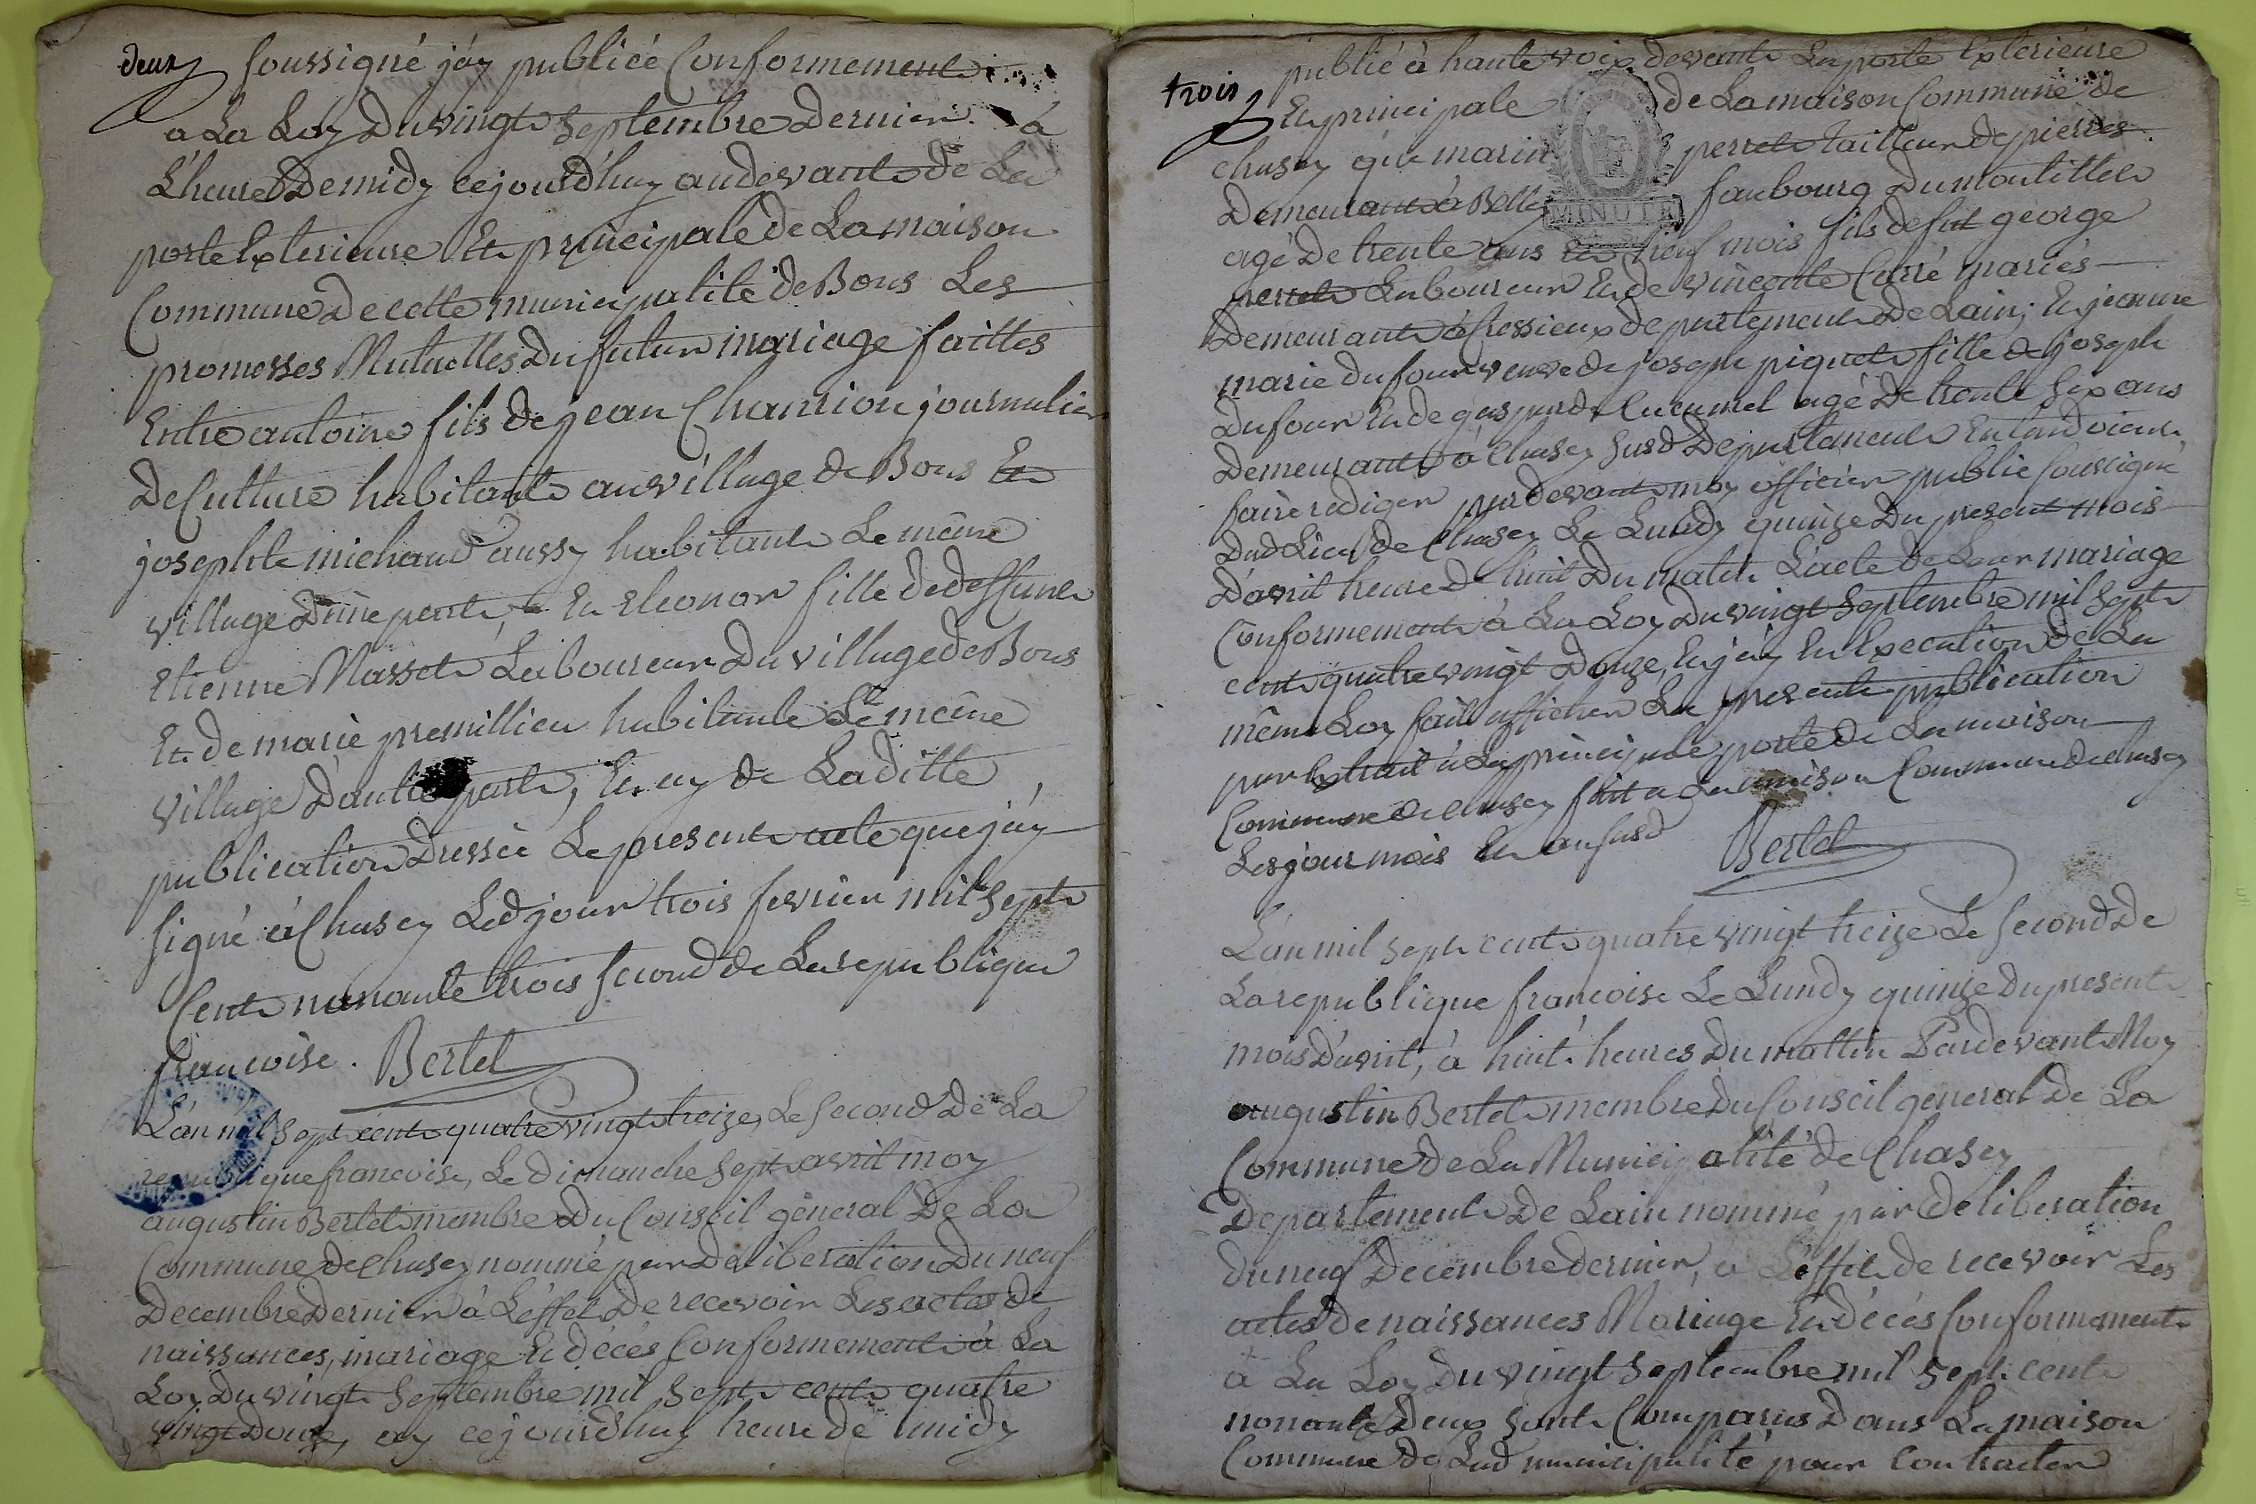 deux
soussigné j'ay publiéé Conformement
a La Loy Du vingt Septembre Dernier à
L'heure De midy cejourd'huy au devant de La
porte Exterieure Et principale de La maison
Commune De cette municipalité de Bons Les
promesses Mutuelles Du futur mariage faittes
Entre antoine fils de jean Chanrion journalier
De Culture habitant au village de Bons Et
josephte michaud aussy habitante Le même
village D'une part, Et Eleonor fille de deffunt
Etienne Masset Laboureur Du village de Bons
Et de marie premillieu habitante Le même
village D'autre part, Et ay de La ditte
publication Dressée Le present acte que j'ay
signé à Chasey Led jour trois fevrier mil Sept
Cent nonante trois second de La republique
françoise. Bertet
L'an mil Sept cent quatre vingt treize, Le Second De La
republique françoise, Le Dimanche Sept avril moy
augustin Bertet membre Du Conseil géneral De La
Commune de Chasey nommé par Deliberation Du neuf
Decembre Dernier à L'effet De recevoir Les actes de
naissances, mariage Et décés Conformement à La
Loy Du vingt Septembre mil Sept cent quatre
vingt Douze, ay cejourd'huy heure de midy
trois
publié à haute voix devant La porte Exterieure
Et principale de La maison Commune de
MINUTE
Chasey que marin perret tailleur de pierres
Demeurant à Belley faubourg Du
agé De trente ans Et neuf mois fils de fut george
perret Laboureur Et de vincente Carré mariés
Demeurant à Cressieux departement De Lain; Et jeanne
marie Dufour veuve de joseph piquet fille de joseph
Dufour Et de gasparde agé De trente Six ans
Demeurant à Chasey Susd Departement
faire rediger pardevant moy officier public soussigné
Dud Lieu de Chasey Le Lundy quinze Du present mois
D'avril heure d huit Du matin L'acte de Leur mariage
Conformement à La Loy Du vingt Septembre mil Sept
cent quatre vingt Douze, Et j'ay En Execution De La
même Loy fait afficher La presente publication
par Extrait à La principale porte de La maison
Commune de Chasey fait a La maison Commune de Chasey
Les jour mois Et an susd Bertet
L'an mil Sept cent quatre vingt treize Le Second De
La republique françoise Le Lundy quinze Du present
mois D'avril, à huit heures Du mattin Pardevant Moy
augustin Bertet membre Du Conseil géneral De La
Commune de La Municipalité de Chasey
Departement De Lain nommé par Deliberation
Du neuf Decembre dernier, à L'effet de recevoir Les
actes de naissances Mariage Et décés Conformement
à La Loy Du vingt Septembre mil Sept cent
nonante Deux Sont Comparus Dans La maison
Commune De Lad municipalité pour Contracter